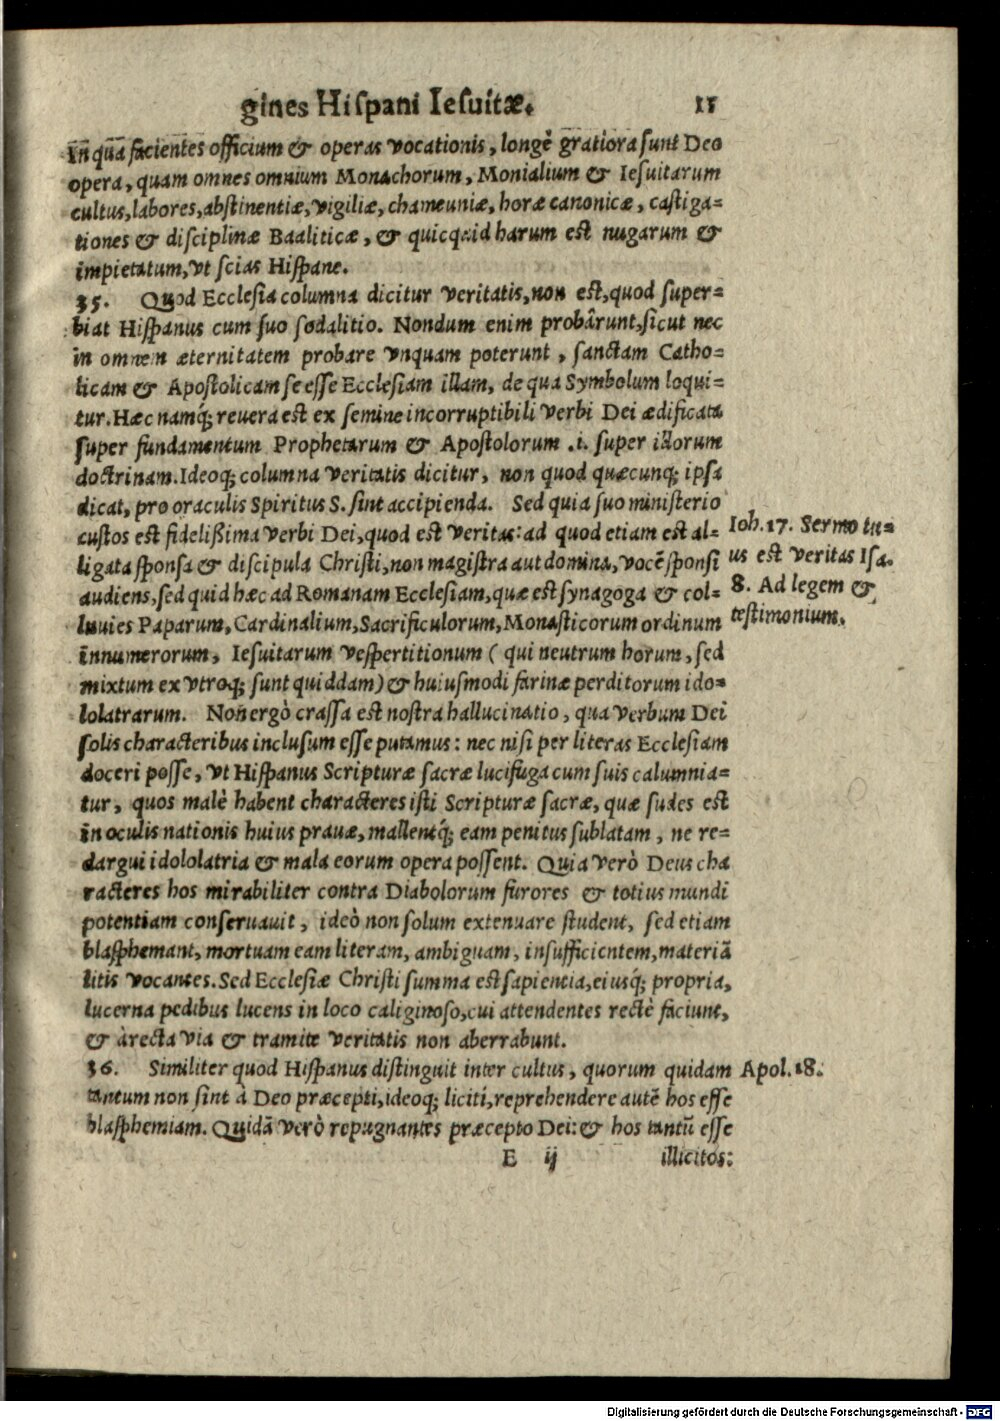 gines Hiſpani Ieſuitæ. 11
In qua facientes officium & operas vocationis, longè gratiora ſunt Deo
opera, quam omnes omnium Monachorum, Monialium & Ieſuitarum
cultus, labores, abſtinentiæ, vigiliæ, chameuniæ, horæ canonicæ, caſtiga=
tiones & diſciplinæ Baaliticæ, & quicquid harum eſt nugarum &
impietatum, vt ſcias Hiſpane.
35. Quod Eccleſia columna dicitur veritatis, non eſt, quod ſuper=
biat Hiſpanus cum ſuo ſodalitio. Nondum enim probârunt, ſicut nec
in omnem æternitatem probare vnquam poterunt, ſanctam Catho=
licam & Apoſtolicam ſe eſſe Eccleſiam illam, de qua Symbolum loqui=
tur. Hæc namq; reuera eſt ex ſemine incorruptibili verbi Dei ædificata
ſuper fundamentum Prophetarum & Apoſtolorum .i. ſuper illorum
doctrinam. Ideoq; columna veritatis dicitur, non quod quæcunq; ipſa
dicat, pro oraculis Spiritus S. ſint accipienda. Sed quia ſuo miniſterio
cuſtos eſt fideliſſima verbi Dei, quod eſt veritas: ad quod etiam eſt al=
ligata ſponſa & diſcipula Chriſti, non magiſtra aut domina, vocē ſponſi
audiens, ſed quid hæc ad Romanam Eccleſiam, quæ eſt ſynagoga & col=
luuies Paparum, Cardinalium, Sacrificulorum, Monaſticorum ordinum
innumerorum, Ieſuitarum veſpertitionum ( qui neutrum horum, ſed
mixtum ex vtroq; ſunt quiddam) & huiuſmodi farinæ perditorum ido=
lolatrarum. Non ergò craſſa eſt noſtra hallucinatio, qua verbum Dei
ſolis characteribus incluſum eſſe putamus: nec niſi per literas Eccleſiam
doceri poſſe, vt Hiſpanus Scripturæ ſacræ lucifuga cum ſuis calumnia=
tur, quos malè habent characteres iſti Scripturæ ſacræ, quæ ſudes eſt
in oculis nationis huius prauæ, mallentq́; eam penitus ſublatam, ne re=
dargui idololatria & mala eorum opera poſſent. Quia verò Deus cha
racteres hos mirabiliter contra Diabolorum furores & totius mundi
potentiam conſeruauit, ideò non ſolum extenuare ſtudent, ſed etiam
blaſphemant, mortuam eam literam, ambiguam, inſufficientem, materiā
litis vocantes. Sed Eccleſiæ Chriſti ſumma eſt ſapientia, eiusq́; propria,
lucerna pedibus lucens in loco caliginoſo, cui attendentes rectè faciunt,
& à recta via & tramite veritatis non aberrabunt.
36. Similiter quod Hiſpanus diſtinguit inter cultus, quorum quidam
tantum non ſint à Deo præcepti, ideoq; liciti, reprehendere autē hos eſſe
blaſphemiam. Quidā verò repugnantes præcepto Dei: & hos tantū eſſe
E ij illicitos:
Ioh. 17. Sermo tu=
us eſt veritas Iſa.
8. Ad legem &
teſtimonium.
Apol. 18.
Digitalisierung gefördert durch die Deutsche Forschungsgemeinschaft - DFG